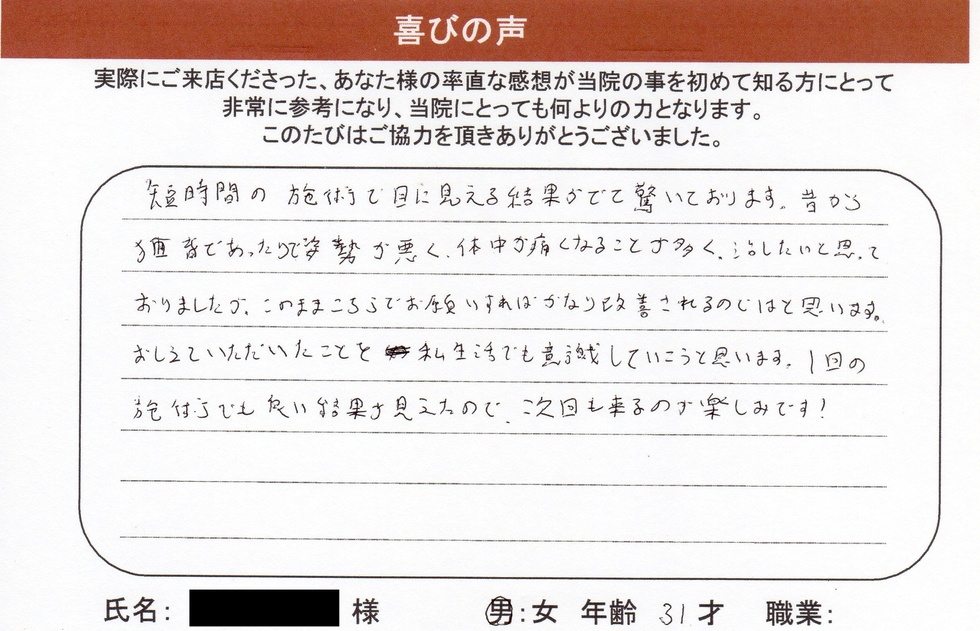 喜びの声
実際にご来店くださった、あなた様の率直な感想が当院の事を初めて知る方にとって
非常に参考になり、当院にとっても何よりの力となります。
このたびはご協力を頂きありがとうございました。
短時間の施術で目に見える結果がでて驚いております。昔から
猫背であったりで姿勢が悪く、体中が痛くなることが多く、治したいと思って
おりましたが、このままこちらでお願いすればかなり改善されるのではと思います。
おしえていただいたことを 私生活でも意識していこうと思います。1回の
施術でも良い結果が見えたので、次回も来るのが楽しみです!
氏名: 様 男:女 年齢 31才 職業: